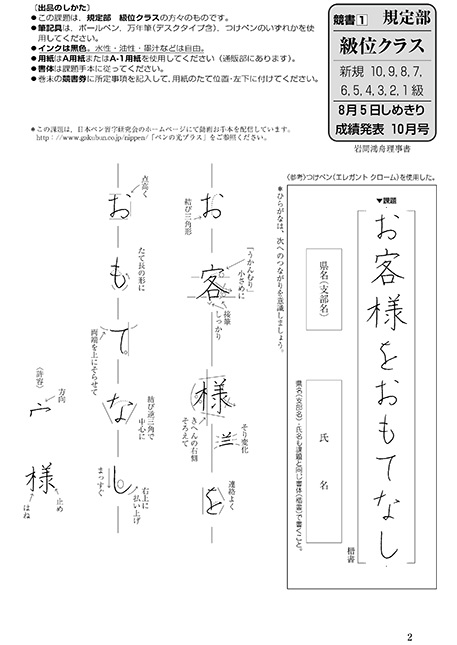 〔出品のしかた〕
●この課題は、規定部 級位クラスの方々のものです。
●筆記具は、ボールペン、万年筆(デスクタイプ含)、つけペンのいずれかを使
用してください。
●インクは黒色。水性・油性・墨汁などは自由。
●用紙はA用紙またはA-1用紙を使用してください(通販部にあります)。
●書体は課題手本に従ってください。
●巻末の競書券に所定事項を記入して、用紙のたて位置・左下に付けてください。
競書1 規定部
級位クラス
新規 10、9、8、7、
6、5、4、3、2、1級
8月5日しめきり
成績発表 10月号
岩間鴻舟理事書
＊この課題は、日本ペン習字研究会のホームページにて動画お手本を配信しています。
http://www.gakubun.co.jp/nippen/「ペンの光プラス」をご参照ください。
(参考)つけペン(エレガント クローム)を使用した。
▼課題
お客様をおもてなし
楷書
県名(支部名)
氏名
県名(支部名)・氏名も課題と同じ書体(楷書)で書くこと。
＊ひらがなは、次へのつながりを意識しましょう。
お
結び三角形
客
「うかんむり」
小さめに
接筆
しっかり
様
きへんの右側
そろえて
そり変化
を
連絡よく
お
点高く
も
たて長の形に
て
両端を上にそらせて
な
結び逆三角で
中心に
し
右上に
払い上げ
まっすぐ
(許容)
方向
宀
様
止め
はね
2